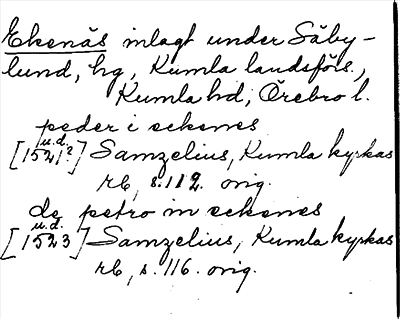 Ekenäs inlagt under Säby-
lund, hg, Kumla landsförs.,
Kumla hd, Örebro l.
peder i eekenes
u.d.
[1521?] Samzelius, Kumla kyrkas
rb, s. 112. orig.
de petro in eekenes
u.d.
[1523] Samzelius, Kumla kyrkas
rb, s. 116. orig.